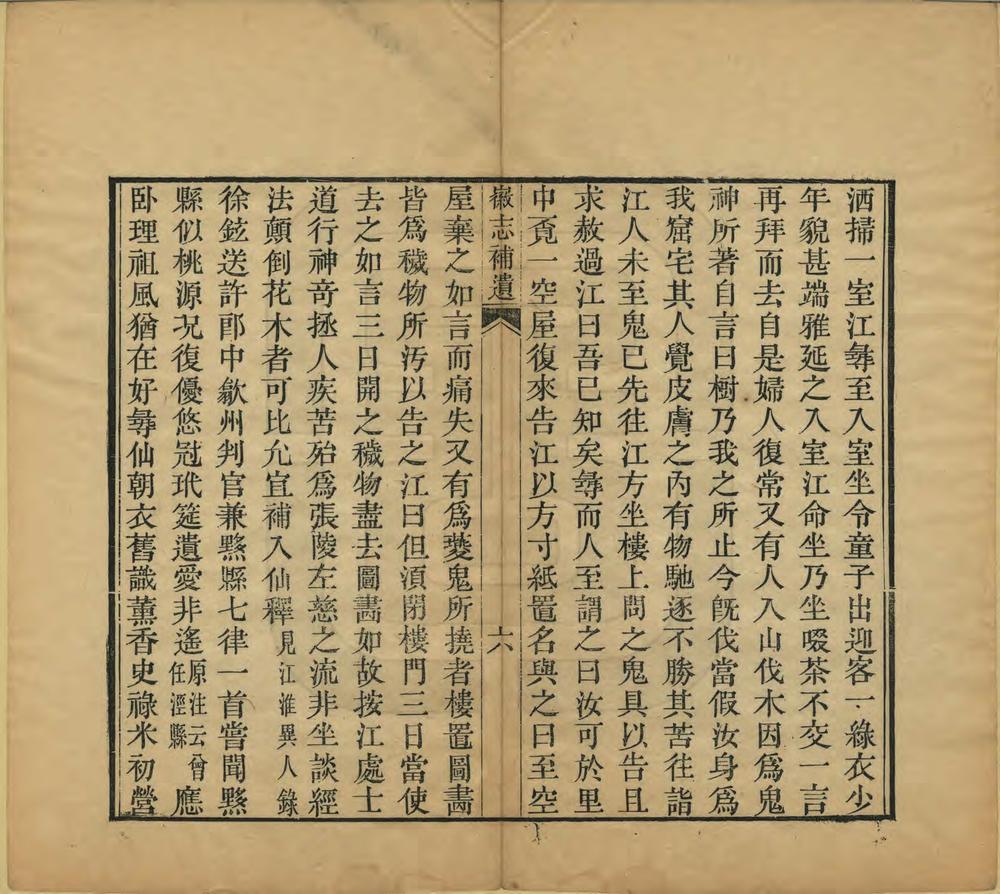 洒掃一室江彝至入室坐令童子出迎客一綠衣少
年貌甚端雅延之入室江命坐乃坐啜茶不交一言
再拜而去自是婦人復常又有人入山伐木因爲鬼
神所著自言曰樹乃我之所止今旣伐當假汝身爲
我窟宅其人覺皮膚之內有物馳逐不勝其苦往詣
江人未至鬼已先往江方坐樓上問之鬼具以告且
求赦過江曰吾已知矣彝而人至謂之曰汝可於里
中覔一空屋復來告江以方寸紙置名與之曰至空
徽志補遺
六
屋棄之如言而痛失又有爲夔鬼所撓者樓置圖畵
皆爲穢物所汚以告之江曰但須閉樓門三日當使
去之如言三日開之穢物盡去圖畵如故按江處士
道行神奇拯人疾苦殆爲張陵左慈之流非坐談經
法顛倒花木者可比允宜補入仙釋見江淮異人錄
徐鉉送許郎中歙州判官兼黟縣七律一首嘗聞黟
縣似桃源况復優悠冠玳筵遺愛非遙原注云曾任涇縣應
卧理祖風猶在好彝仙朝衣舊識薰香史祿米初營